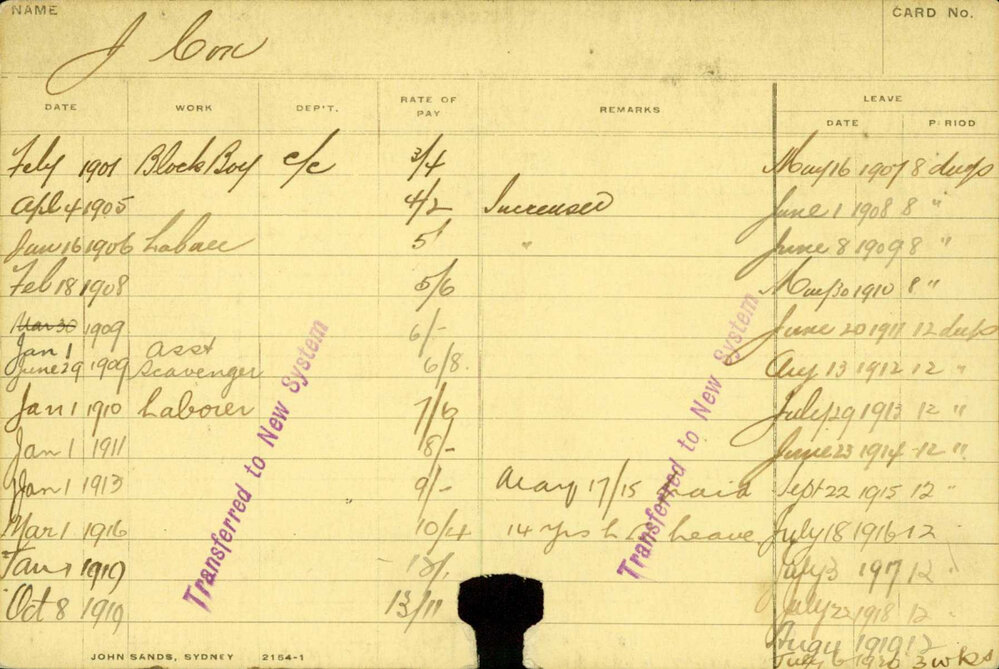 NAME
CARD No.
J Cox
DATE WORK DEP'T. RATE OF PAY REMARKS LEAVE
DATE PERIOD
Feby 1901 Block Boy c/c 3/4 May 16 1907 8 days
Apl 4 1905 4/2 Increased June 1 1908 8 "
Jan 16 1906 Laborer 5/ " June 8 1909 8 "
Feb 18 1908 5/6 May 30 1910 8 "
Mar 30 1909 6/- June 20 1911 12 days
Jan 1
June 29 1909 Asst Scavenger 6/8 Aug 13 1912 12 "
Jan 1 1910 Laborer 7/ July 29 1913 12 "
Jan 1 1911 8/- June 23 1914 12 "
Jan 1 1913 9/- May 17/15 Paid Sept 22 1915 12 "
Mar 1 1916 10/4 14 yrs Leave July 18 1916 12
Jan 1 1919 July 3 1917 12 "
Oct 8 1919 13/11 July 22 1918 12 "
Aug 1919 12
1920 3 wks
Transferred to New System
Transferred to New System
JOHN SANDS, SYDNEY 2154-1